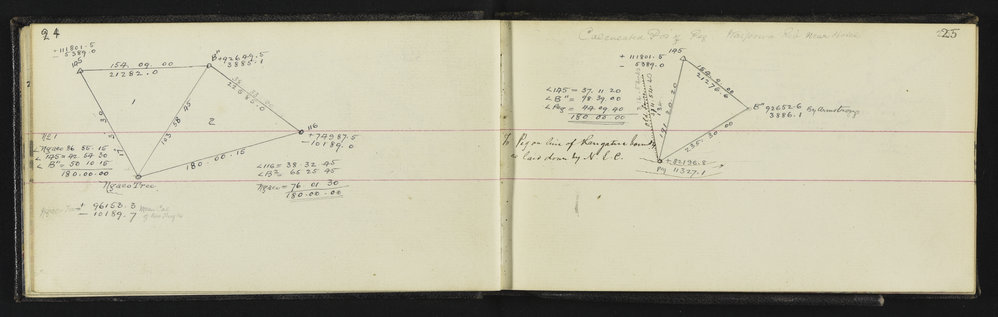 24
+ 111801.5
- 5389.0
145
154. 09. 00
21282.0
B"
+92649.5
3885.1
1
2
103 58 45
22685.0
116
+74987.5
-10189.0
180-00-15
Ngaeo Tree
No 1
∠ Ngaeo 86 55.15
∠ 145 = 42 54 30
∠ B" = 50 10 15
180.00.00
+ 96153.3
- 10189.7
Mean Cal
∠116 = 38 32 45
∠B" = 65 25 45
Ngaeo = 76 01 30
180.00.00
25
Calculated Pos of Peg
+ 111801.5
- 5389.0
145
154. 9. 00
21276.6
∠145 = 37. 11. 20
∠B" = 98. 39. 00
∠Peg = 44. 09. 40
180 00 00
191 20 20
B" 92652.6
3886.1
By Armstrong
235. 30. 00
To Peg on line of Rangatira boundy
as laid down by N. L. C.
+82196.8
Peg 11327.1